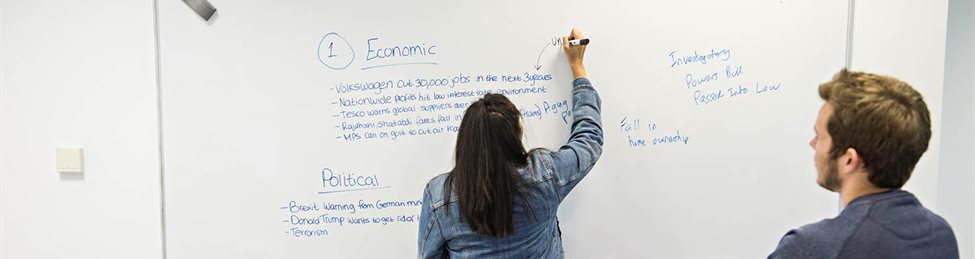 1 Economic
- Volkswagen cut 30,000 jobs in the next 3 years
- Nationwide profits hit low interest rate environment
- Tesco warns global suppliers over
- Rajdhani, Shatabdi fares fall in (trains)
- MPs call on govt to cut air
Un
Aging
Political
- Brexit warning from German
- Donald Trump wants to get rid of
- Terrorism
Investigatory
Powers Bill
Passed Into Law
Fall in
home ownership